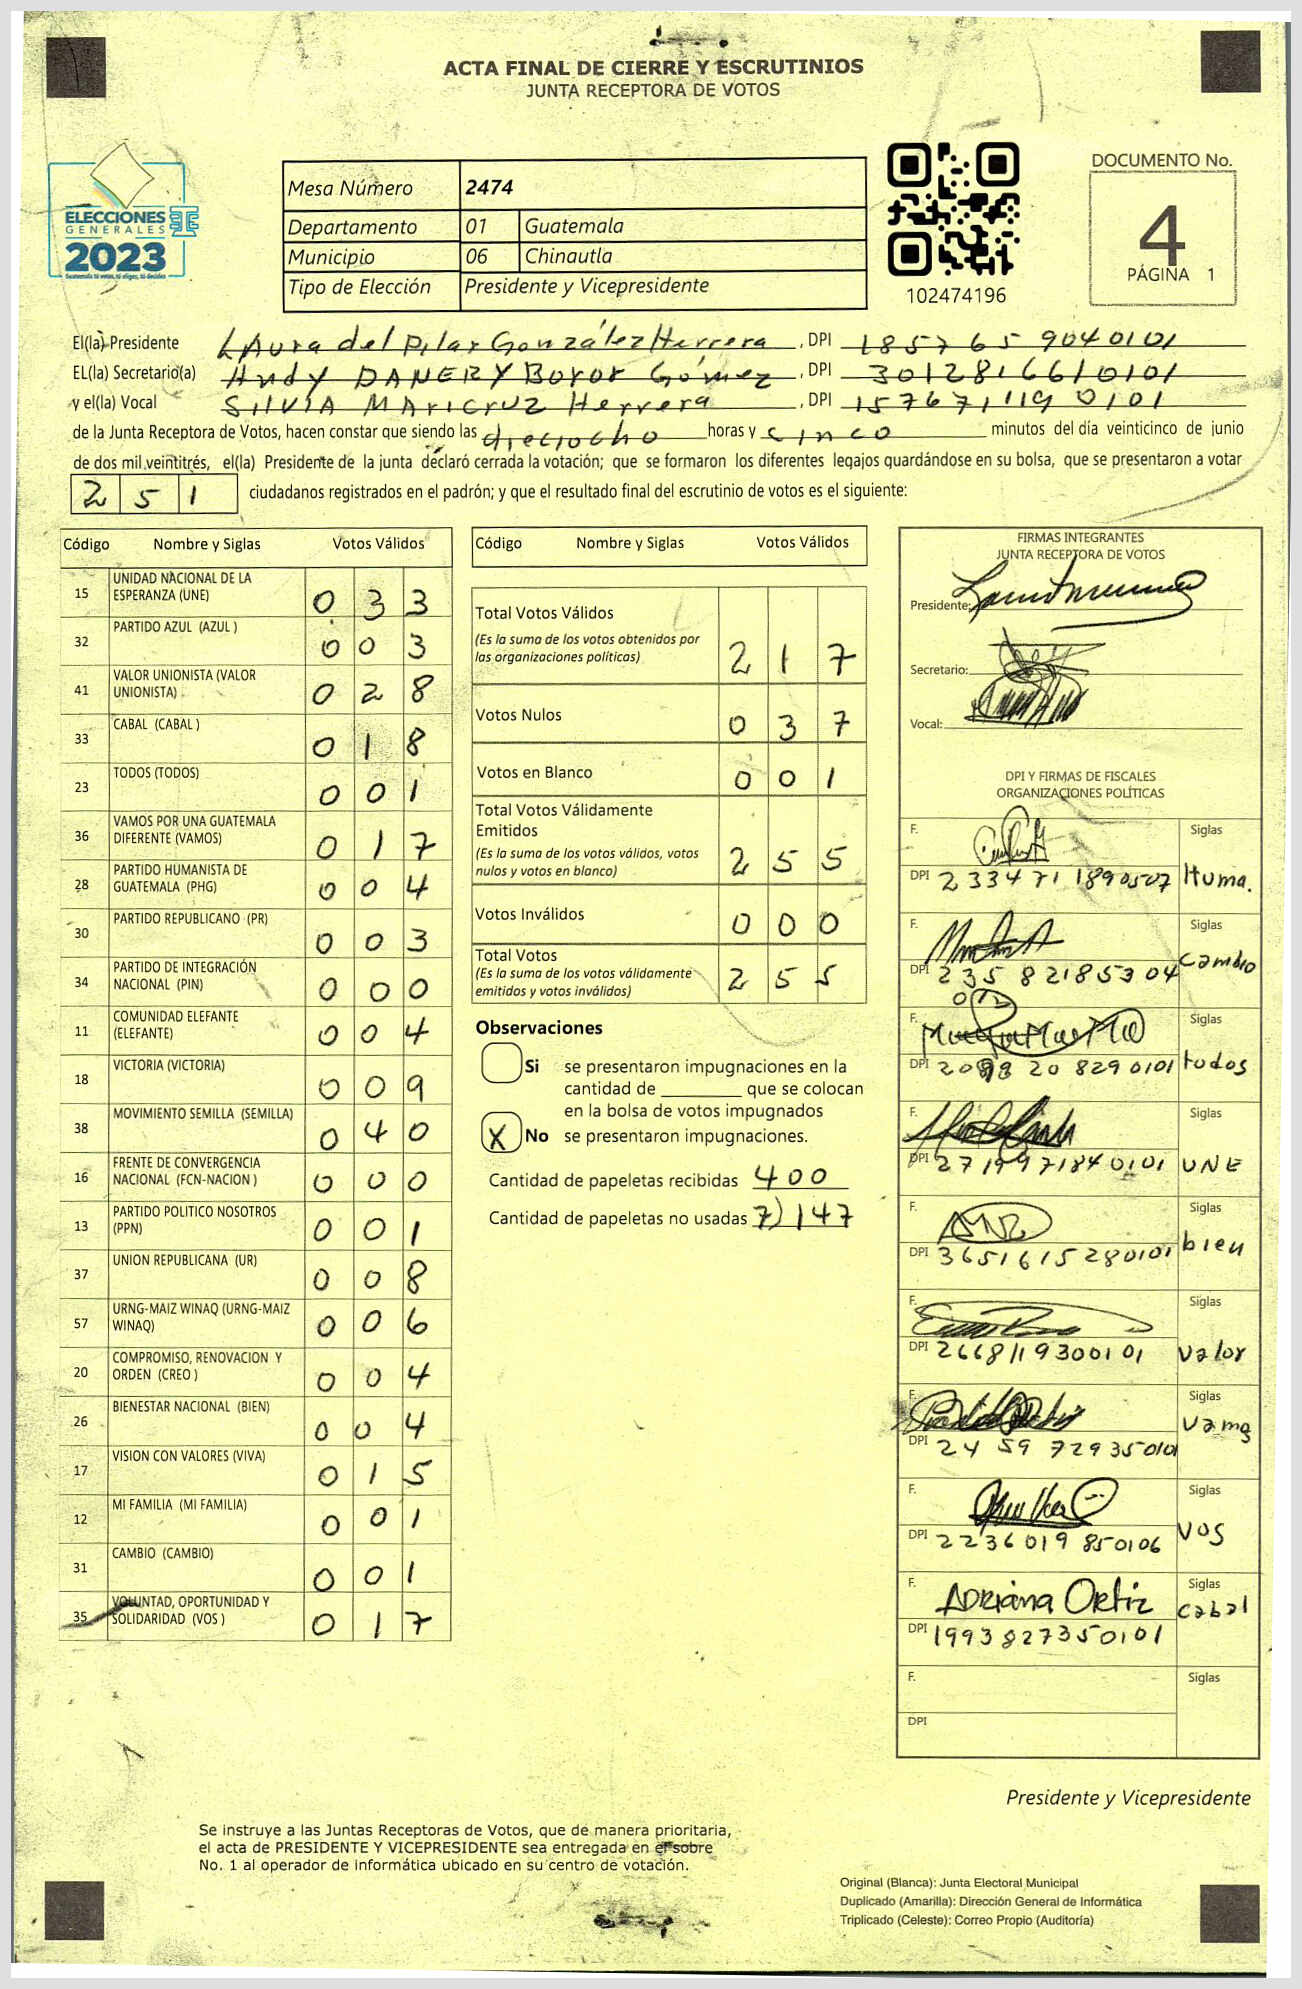 ACTA FINAL DE CIERRE Y ESCRUTINIOS
JUNTA RECEPTORA DE VOTOS
ELECCIONES
GENERALES
2023
Guatemala tú votas, tú eliges, tú decides
Mesa Número 2474
Departamento 01 Guatemala
Municipio 06 Chinautla
Tipo de Elección Presidente y Vicepresidente
102474196
DOCUMENTO No.
4
PÁGINA 1
El(la) Presidente LAura del Pilar González Herrera, DPI 1857659040101
EL(la) Secretario(a) Andy DANERY Boror Gómez, DPI 3012816610101
y el(la) Vocal SilVIA MAricruz Herrera, DPI 1576711190101
de la Junta Receptora de Votos, hacen constar que siendo las dieciocho horas y cinco minutos del día veinticinco de junio
de dos mil veintitrés, el(la) Presidente de la junta declaró cerrada la votación; que se formaron los diferentes legajos guardándose en su bolsa, que se presentaron a votar
251 ciudadanos registrados en el padrón; y que el resultado final del escrutinio de votos es el siguiente:
Código Nombre y Siglas Votos Válidos
15 UNIDAD NACIONAL DE LA ESPERANZA (UNE) 033
32 PARTIDO AZUL (AZUL ) 003
41 VALOR UNIONISTA (VALOR UNIONISTA) 028
33 CABAL (CABAL ) 018
23 TODOS (TODOS) 001
36 VAMOS POR UNA GUATEMALA DIFERENTE (VAMOS) 017
28 PARTIDO HUMANISTA DE GUATEMALA (PHG) 004
30 PARTIDO REPUBLICANO (PR) 003
34 PARTIDO DE INTEGRACIÓN NACIONAL (PIN) 000
11 COMUNIDAD ELEFANTE (ELEFANTE) 004
18 VICTORIA (VICTORIA) 009
38 MOVIMIENTO SEMILLA (SEMILLA) 040
16 FRENTE DE CONVERGENCIA NACIONAL (FCN-NACION ) 000
13 PARTIDO POLITICO NOSOTROS (PPN) 001
37 UNION REPUBLICANA (UR) 008
57 URNG-MAIZ WINAQ (URNG-MAIZ WINAQ) 006
20 COMPROMISO, RENOVACION Y ORDEN (CREO ) 004
26 BIENESTAR NACIONAL (BIEN) 004
17 VISION CON VALORES (VIVA) 015
12 MI FAMILIA (MI FAMILIA) 001
31 CAMBIO (CAMBIO) 001
35 VOLUNTAD, OPORTUNIDAD Y SOLIDARIDAD (VOS ) 017
Código Nombre y Siglas Votos Válidos
Total Votos Válidos 217
(Es la suma de los votos obtenidos por
las organizaciones políticas)
Votos Nulos 037
Votos en Blanco 001
Total Votos Válidamente
Emitidos 255
(Es la suma de los votos válidos, votos
nulos y votos en blanco)
Votos Inválidos 000
Total Votos 255
(Es la suma de los votos válidamente
emitidos y votos inválidos)
Observaciones
Si se presentaron impugnaciones en la
cantidad de ________ que se colocan
en la bolsa de votos impugnados
X No se presentaron impugnaciones.
Cantidad de papeletas recibidas 400
Cantidad de papeletas no usadas 7) 147
FIRMAS INTEGRANTES
JUNTA RECEPTORA DE VOTOS
Presidente:
Secretario:
Vocal:
DPI Y FIRMAS DE FISCALES
ORGANIZACIONES POLÍTICAS
F. Siglas
DPI 2334711890507 Huma.
F. Siglas
DPI 23582185304 cambio
F. Siglas
DPI 20 820 0101 todos
F. Siglas
DPI 2719971840101 UNE
F. Siglas
DPI 3651615280101 bien
F. Siglas
DPI 2668119300101 valor
F. Siglas
DPI 2459729350101 vamos
F. Siglas
DPI 2236019850106 VOS
F. ADRiana Ortiz Siglas
DPI 1993827350101 cabal
F. Siglas
DPI
Presidente y Vicepresidente
Se instruye a las Juntas Receptoras de Votos, que de manera prioritaria,
el acta de PRESIDENTE Y VICEPRESIDENTE sea entregada en el sobre
No. 1 al operador de informática ubicado en su centro de votación.
Original (Blanca): Junta Electoral Municipal
Duplicado (Amarilla): Dirección General de Informática
Triplicado (Celeste): Correo Propio (Auditoría)